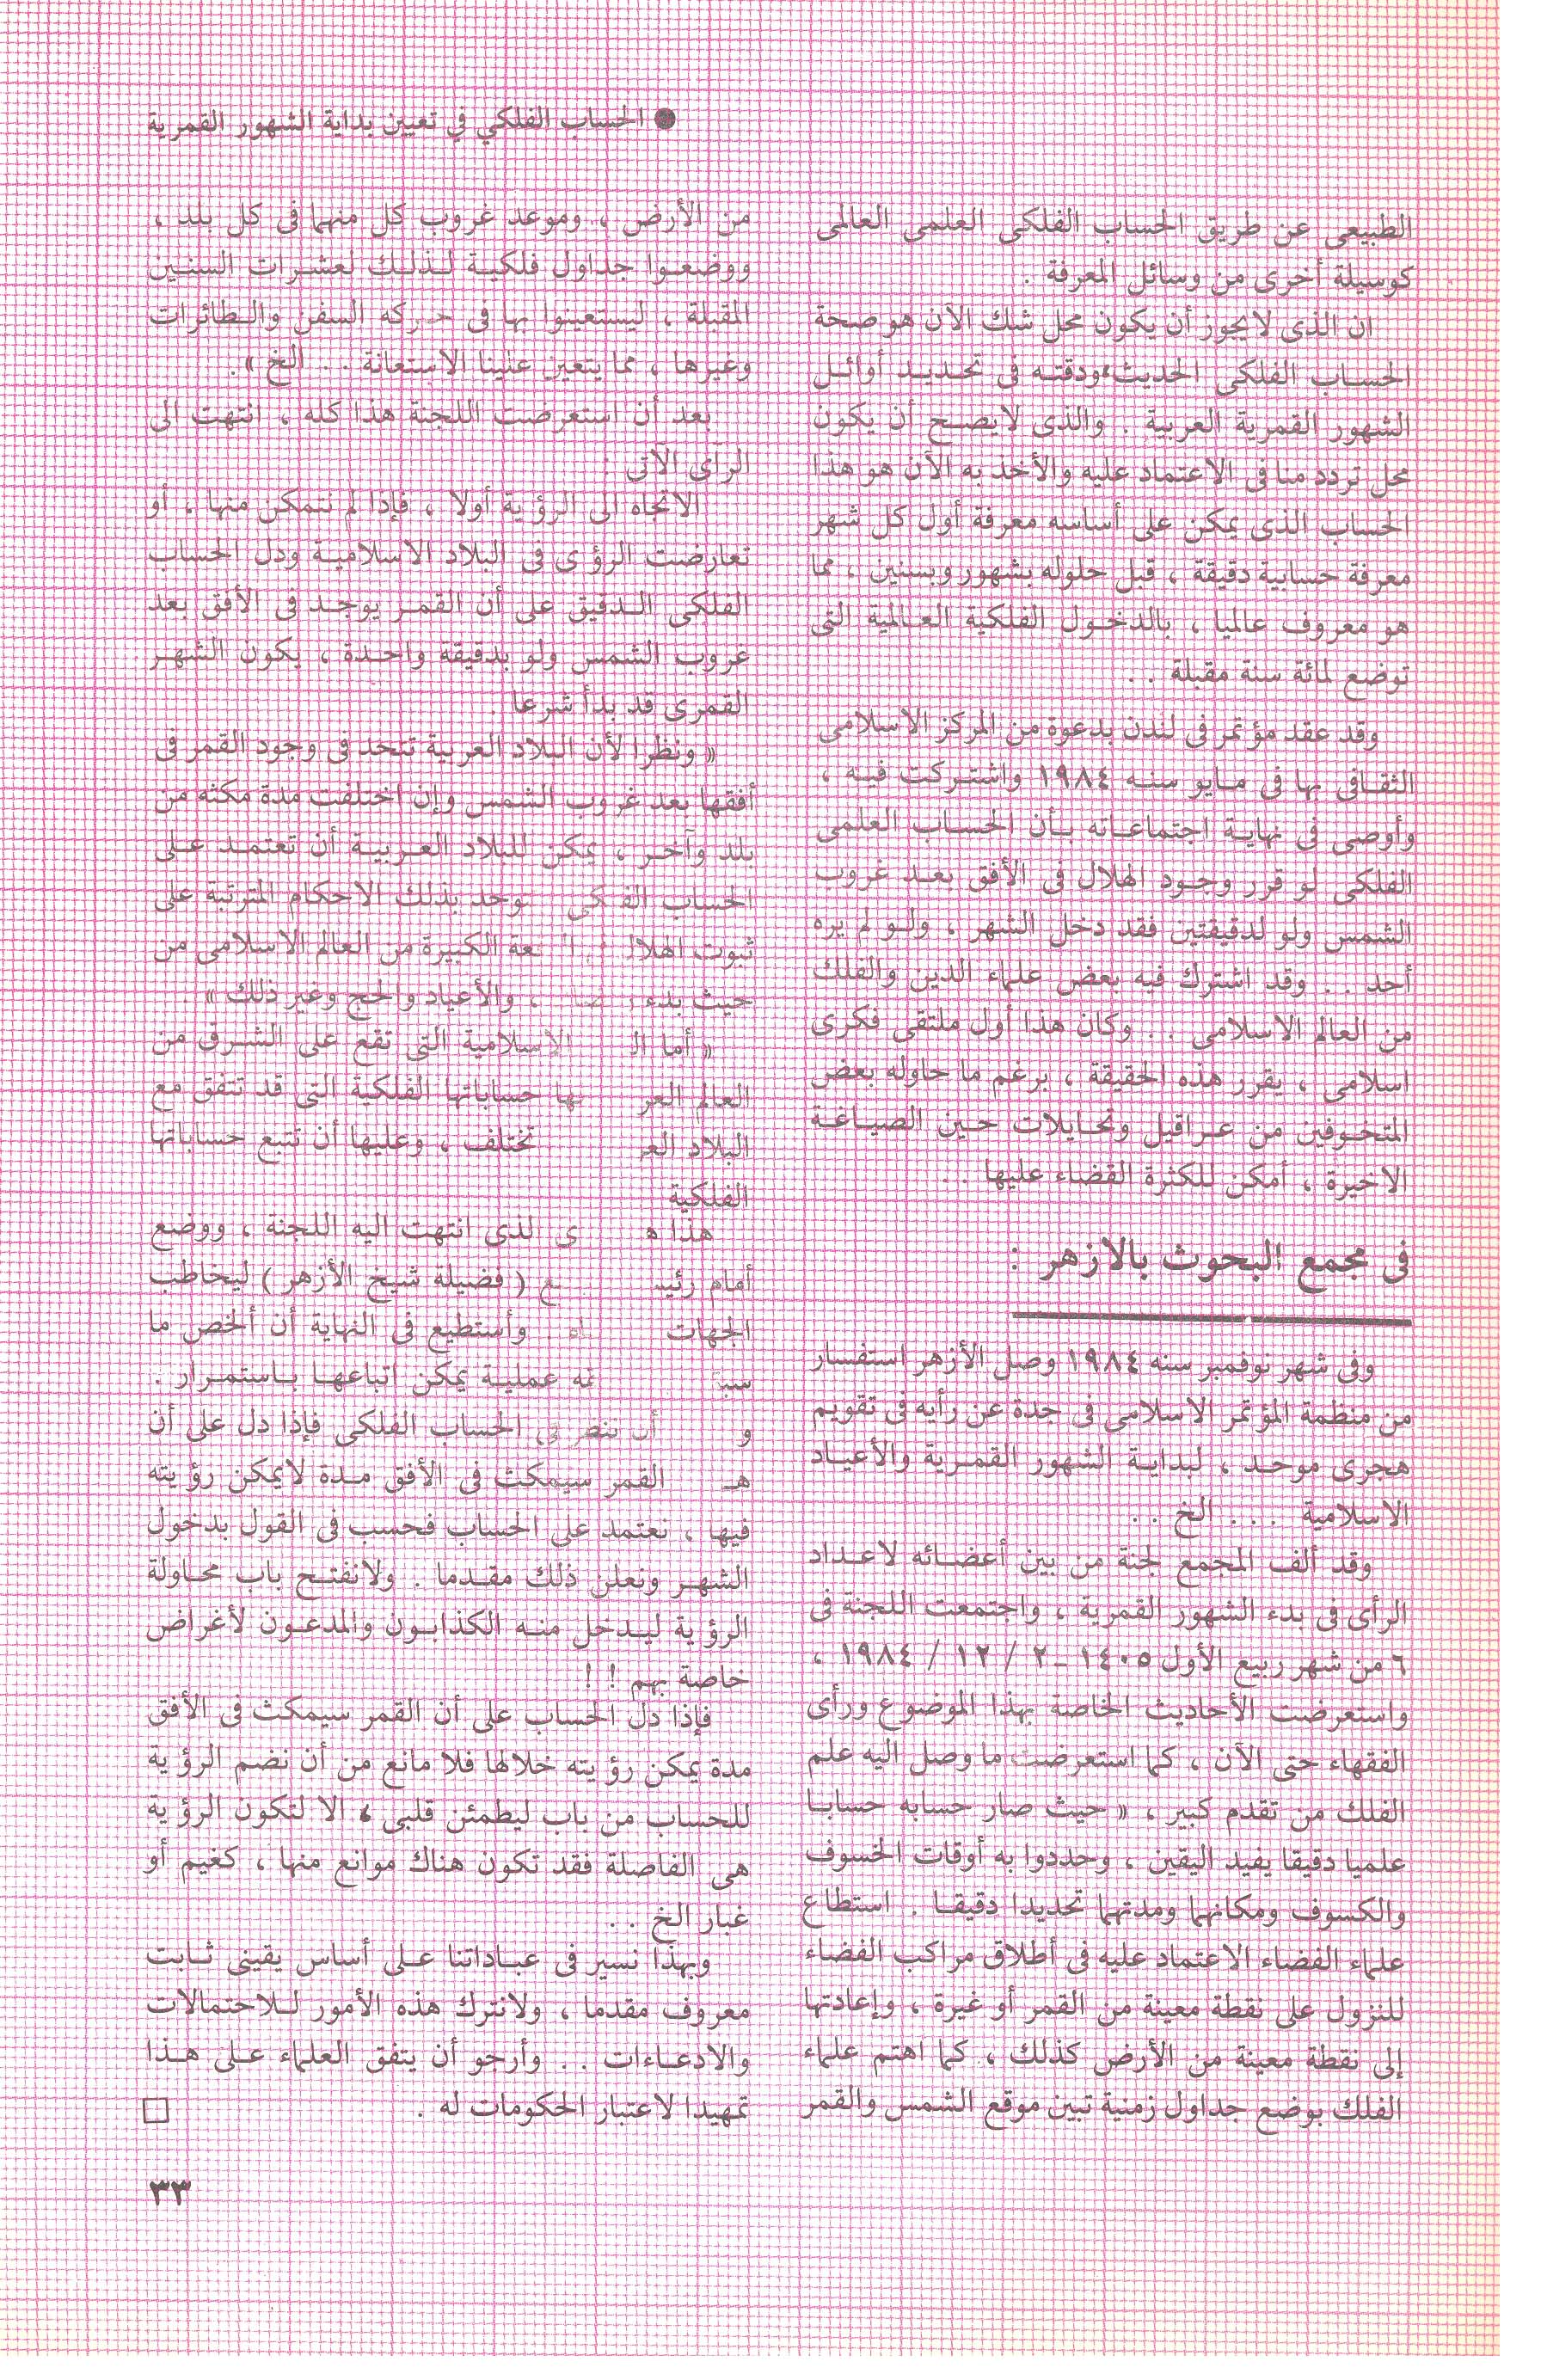 ● الحساب الفلكي في تعيين بداية الشهور القمرية
الطبيعى عن طريق الحساب الفلكى العلمى العالمى
كوسيلة أخرى من وسائل المعرفة .
ان الذى لايجوز أن يكون محل شك الآن هو صحة
الحساب الفلكى الحديث ودقته فى تحديد أوائل
الشهور القمرية العربية . والذى لايصح أن يكون
محل تردد منا فى الاعتماد عليه والأخذ به الآن هو هذا
الحساب الذى يمكن على أساسه معرفة أول كل شهر
معرفة حسابية دقيقة ، قبل حلوله بشهور وبسنين ، مما
هو معروف عالميا ، بالدخول الفلكية العالمية التى
توضع لمائة سنة مقبلة . .
وقد عقد مؤتمر فى لندن بدعوة من المركز الاسلامى
الثقافى بها فى مايو سنه ١٩٨٤ واشتركت فيه ،
وأوصى فى نهاية اجتماعاته بأن الحساب العلمى
الفلكى لو قرر وجود الهلال فى الأفق بعد غروب
الشمس ولو لدقيقتين فقد دخل الشهر ، ولو لم يره
أحد . . وقد اشترك فيه بعض علماء الدين والفلك
من العالم الاسلامى . . وكان هذا أول ملتقى فكرى
اسلامى ، يقرر هذه الحقيقة ، برغم ما حاوله بعض
المتخوفين من عراقيل وتحايلات حين الصياغة
الاخيرة ، أمكن للكثرة القضاء عليها . .
فى مجمع البحوث بالازهر :
وفى شهر نوفمبر سنه ١٩٨٤ وصل الأزهر استفسار
من منظمة المؤتمر الاسلامى فى جدة عن رأيه فى تقويم
هجرى موحد ، لبداية الشهور القمرية والأعياد
الاسلامية . . . الخ . .
وقد ألف المجمع لجنة من بين أعضائه لاعداد
الرأى فى بدء الشهور القمرية ، واجتمعت اللجنة فى
٦ من شهر ربيع الأول ١٤٠٥ - ٢ / ١٢ / ١٩٨٤ ،
واستعرضت الأحاديث الخاصة بهذا الموضوع ورأى
الفقهاء حتى الآن ، كما استعرضت ما وصل اليه علم
الفلك من تقدم كبير ، « حيث صار حسابه حسابا
علميا دقيقا يفيد اليقين ، وحددوا به أوقات الخسوف
والكسوف ومكانهما ومدتهما تحديدا دقيقا . استطاع
علماء الفضاء الاعتماد عليه فى أطلاق مراكب الفضاء
للنزول على نقطة معينة من القمر أو غيرة ، وإعادتها
إلى نقطة معينة من الأرض كذلك ، كما اهتم علماء
الفلك بوضع جداول زمنية تبين موقع الشمس والقمر
من الأرض ، وموعد غروب كل منهما فى كل بلد ،
ووضعوا جداول فلكية لذلك لعشرات السنين
المقبلة ، ليستعينوا بها فى حركه السفن والطائرات
وغيرها ، مما يتعين علينا الاستعانة . . الخ » .
بعد أن استعرضت اللجنة هذا كله ، انتهت الى
الرأى الآتى :
الاتجاه الى الرؤية أولا ، فإذا لم نتمكن منها ، أو
تعارضت الرؤى فى البلاد الاسلامية ودل الحساب
الفلكى الدقيق على أن القمر يوجد فى الأفق بعد
غروب الشمس ولو بدقيقة واحدة ، يكون الشهر
القمرى قد بدأ شرعا .
« ونظرا لأن البلاد العربية تتحد فى وجود القمر فى
أفقها بعد غروب الشمس وإن اختلفت مدة مكثه من
بلد وآخر ، يمكن للبلاد العربية أن تعتمد على
الحساب الفلكى توحد بذلك الاحكام المترتبة على
ثبوت الهلال الكبيرة من العالم الاسلامى من
حيث بدء ، والأعياد والحج وغير ذلك » .
« أما الاسلامية التى تقع على الشرق من
العالم حساباتها الفلكية التى قد تتفق مع
البلاد تختلف ، وعليها أن تتبع حساباتها
الفلكية
هذا لذى انتهت اليه اللجنة ، ووضع
أمام ( فضيلة شيخ الأزهر ) ليخاطب
الجهات . وأستطيع فى النهاية أن ألخص ما
عملية يمكن اتباعها باستمرار .
أن الحساب الفلكى فإذا دل على أن
القمر سيمكث فى الأفق مدة لايمكن رؤيته
فيها ، نعتمد على الحساب فحسب فى القول بدخول
الشهر ونعلن ذلك مقدما . ولانفتح باب محاولة
الرؤية ليدخل منه الكذابون والمدعون لأغراض
خاصة بهم ! !
فإذا دل الحساب على أن القمر سيمكث فى الأفق
مدة يمكن رؤيته خلالها فلا مانع من أن نضم الرؤية
للحساب من باب ليطمئن قلبى ، الا لتكون الرؤية
هى الفاصلة فقد تكون هناك موانع منها ، كغيم أو
غبار الخ . .
وبهذا نسير فى عباداتنا على أساس يقينى ثابت
معروف مقدما ، ولانترك هذه الأمور للاحتمالات
والادعاءات . . وأرجو أن يتفق العلماء على هذا
تمهيدا لاعتبار الحكومات له .
٣٣